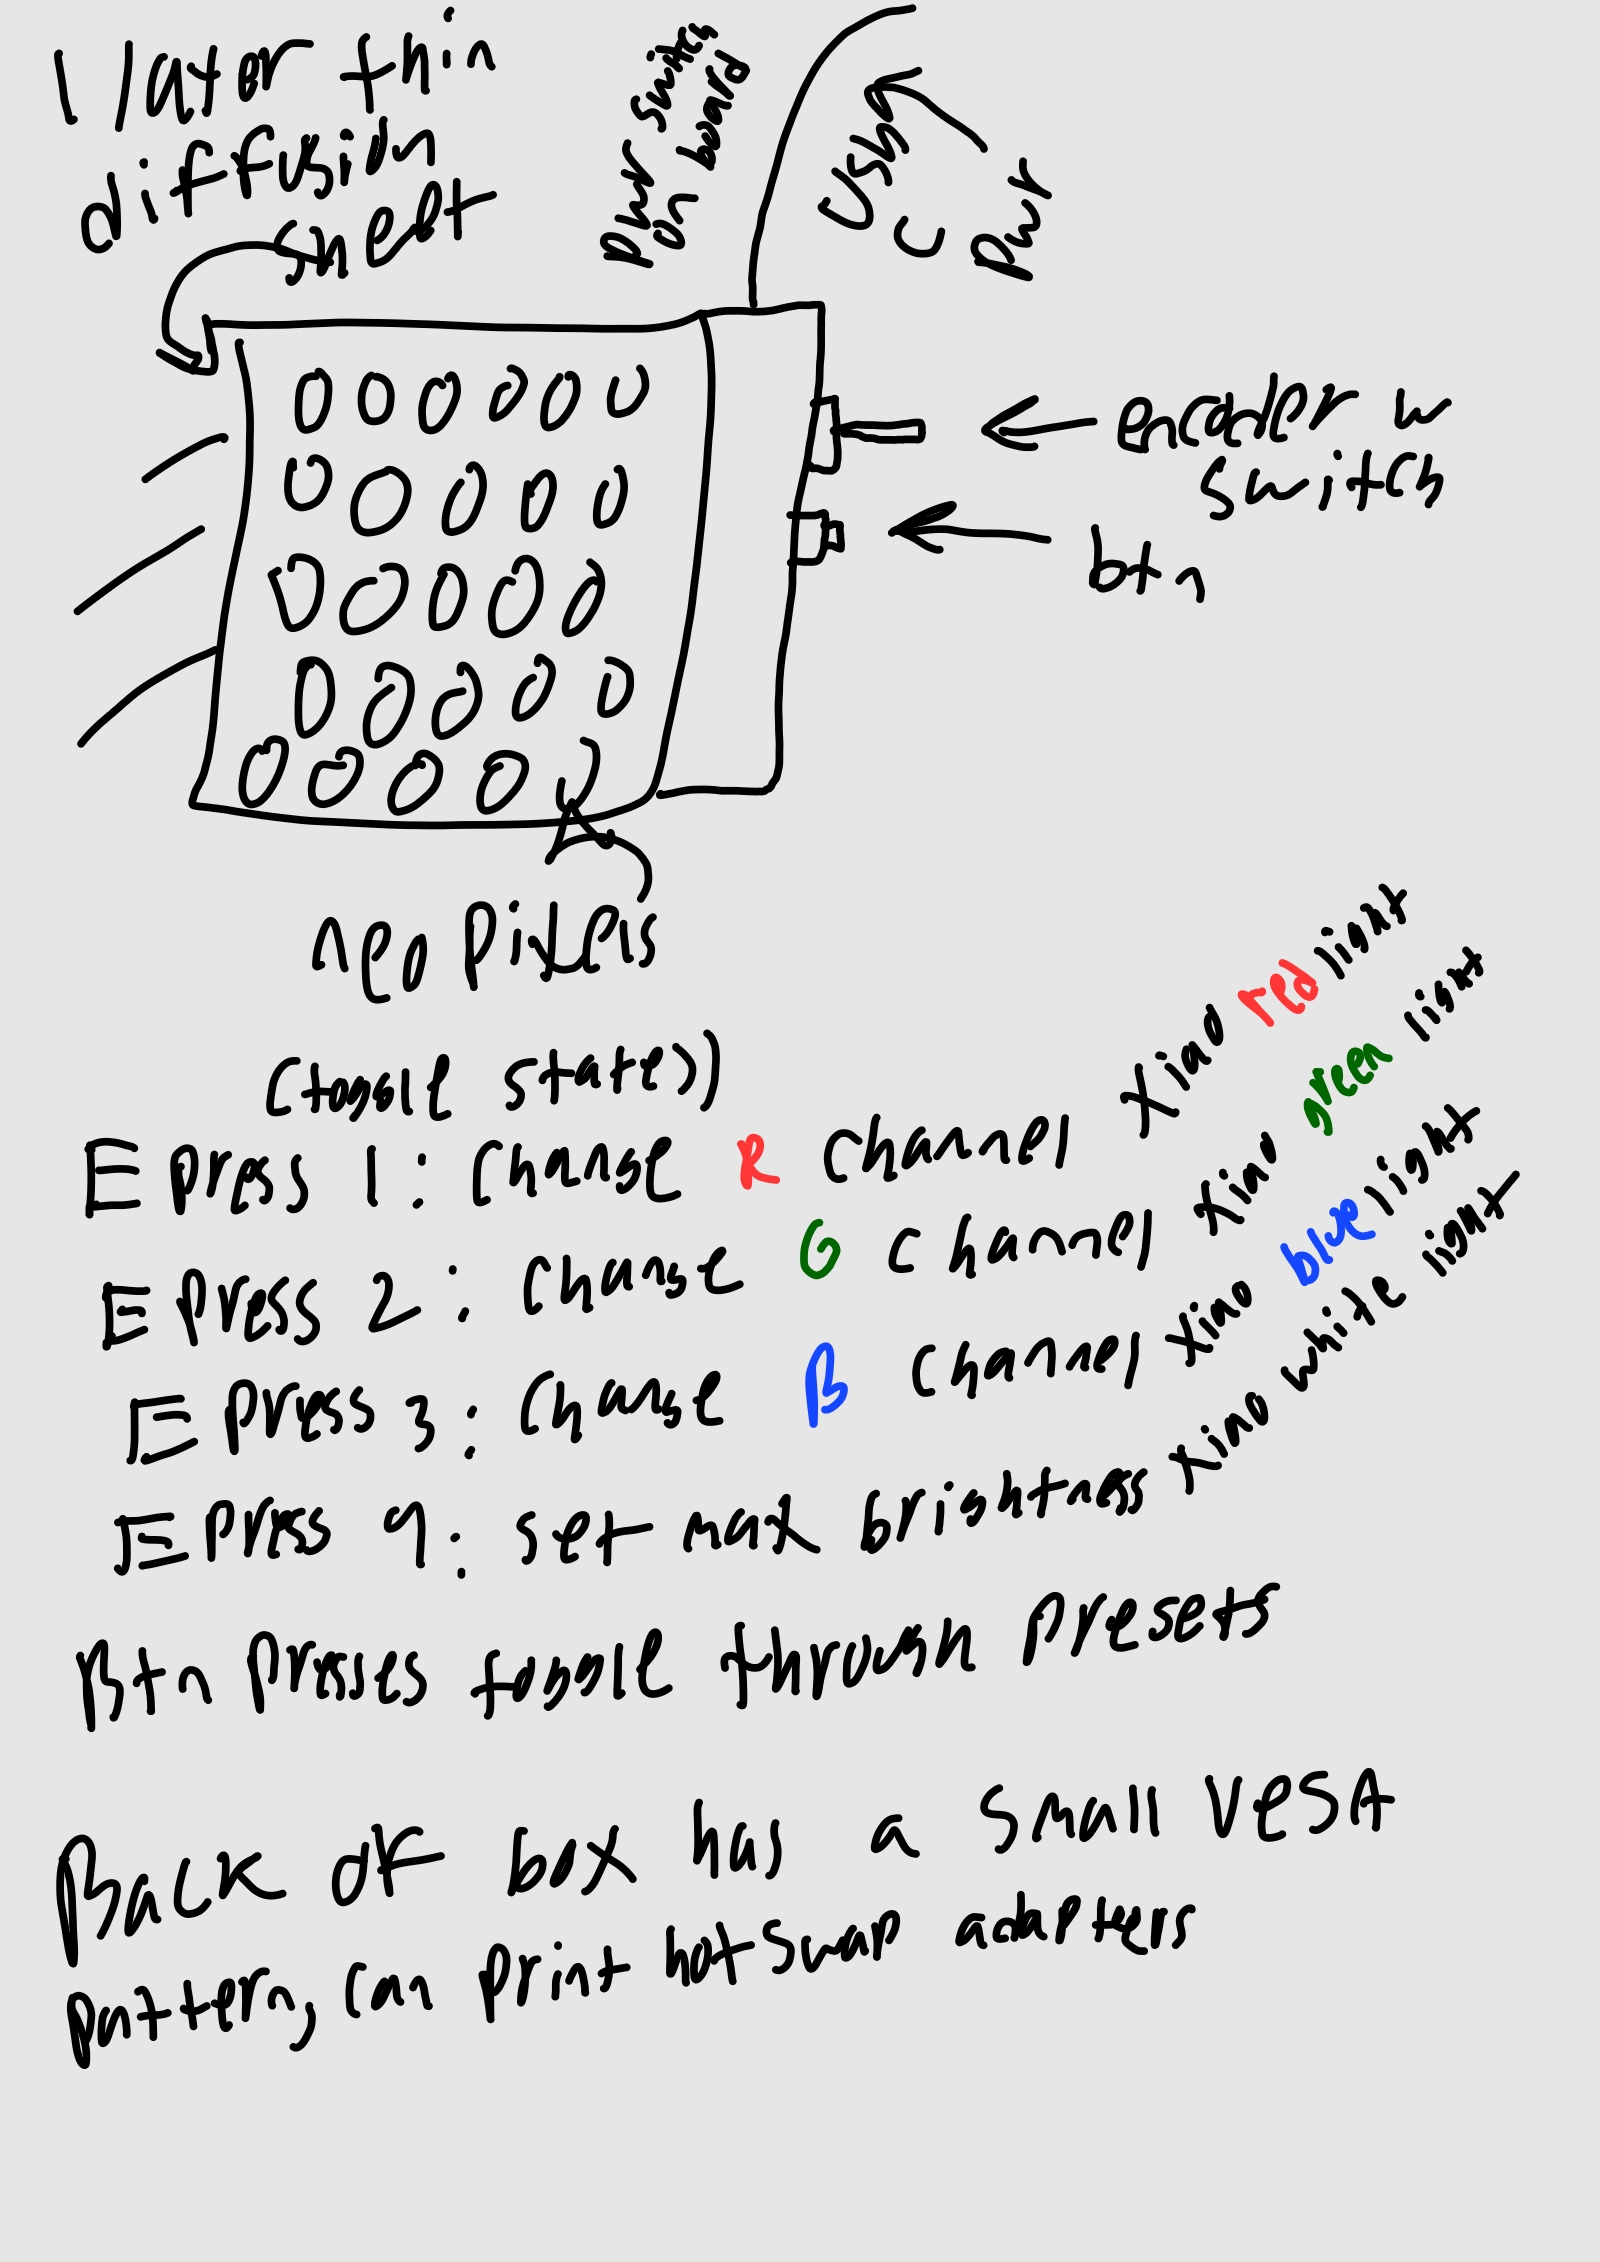 1 layer thin
diffusion
sheet
pwr switch
on board
Usb
C
Pwr
encoder w
switch
btn
neo pixels
(toggle states)
E press 1: Change R channel Xiao red light
E press 2: Change G channel Xiao green light
E press 3: Change B channel Xiao blue light
E press 4: set max brightness Xiao white light
Btn presses toggle through presets
Back of box has a small VESA
pattern, can print hotswap adapters